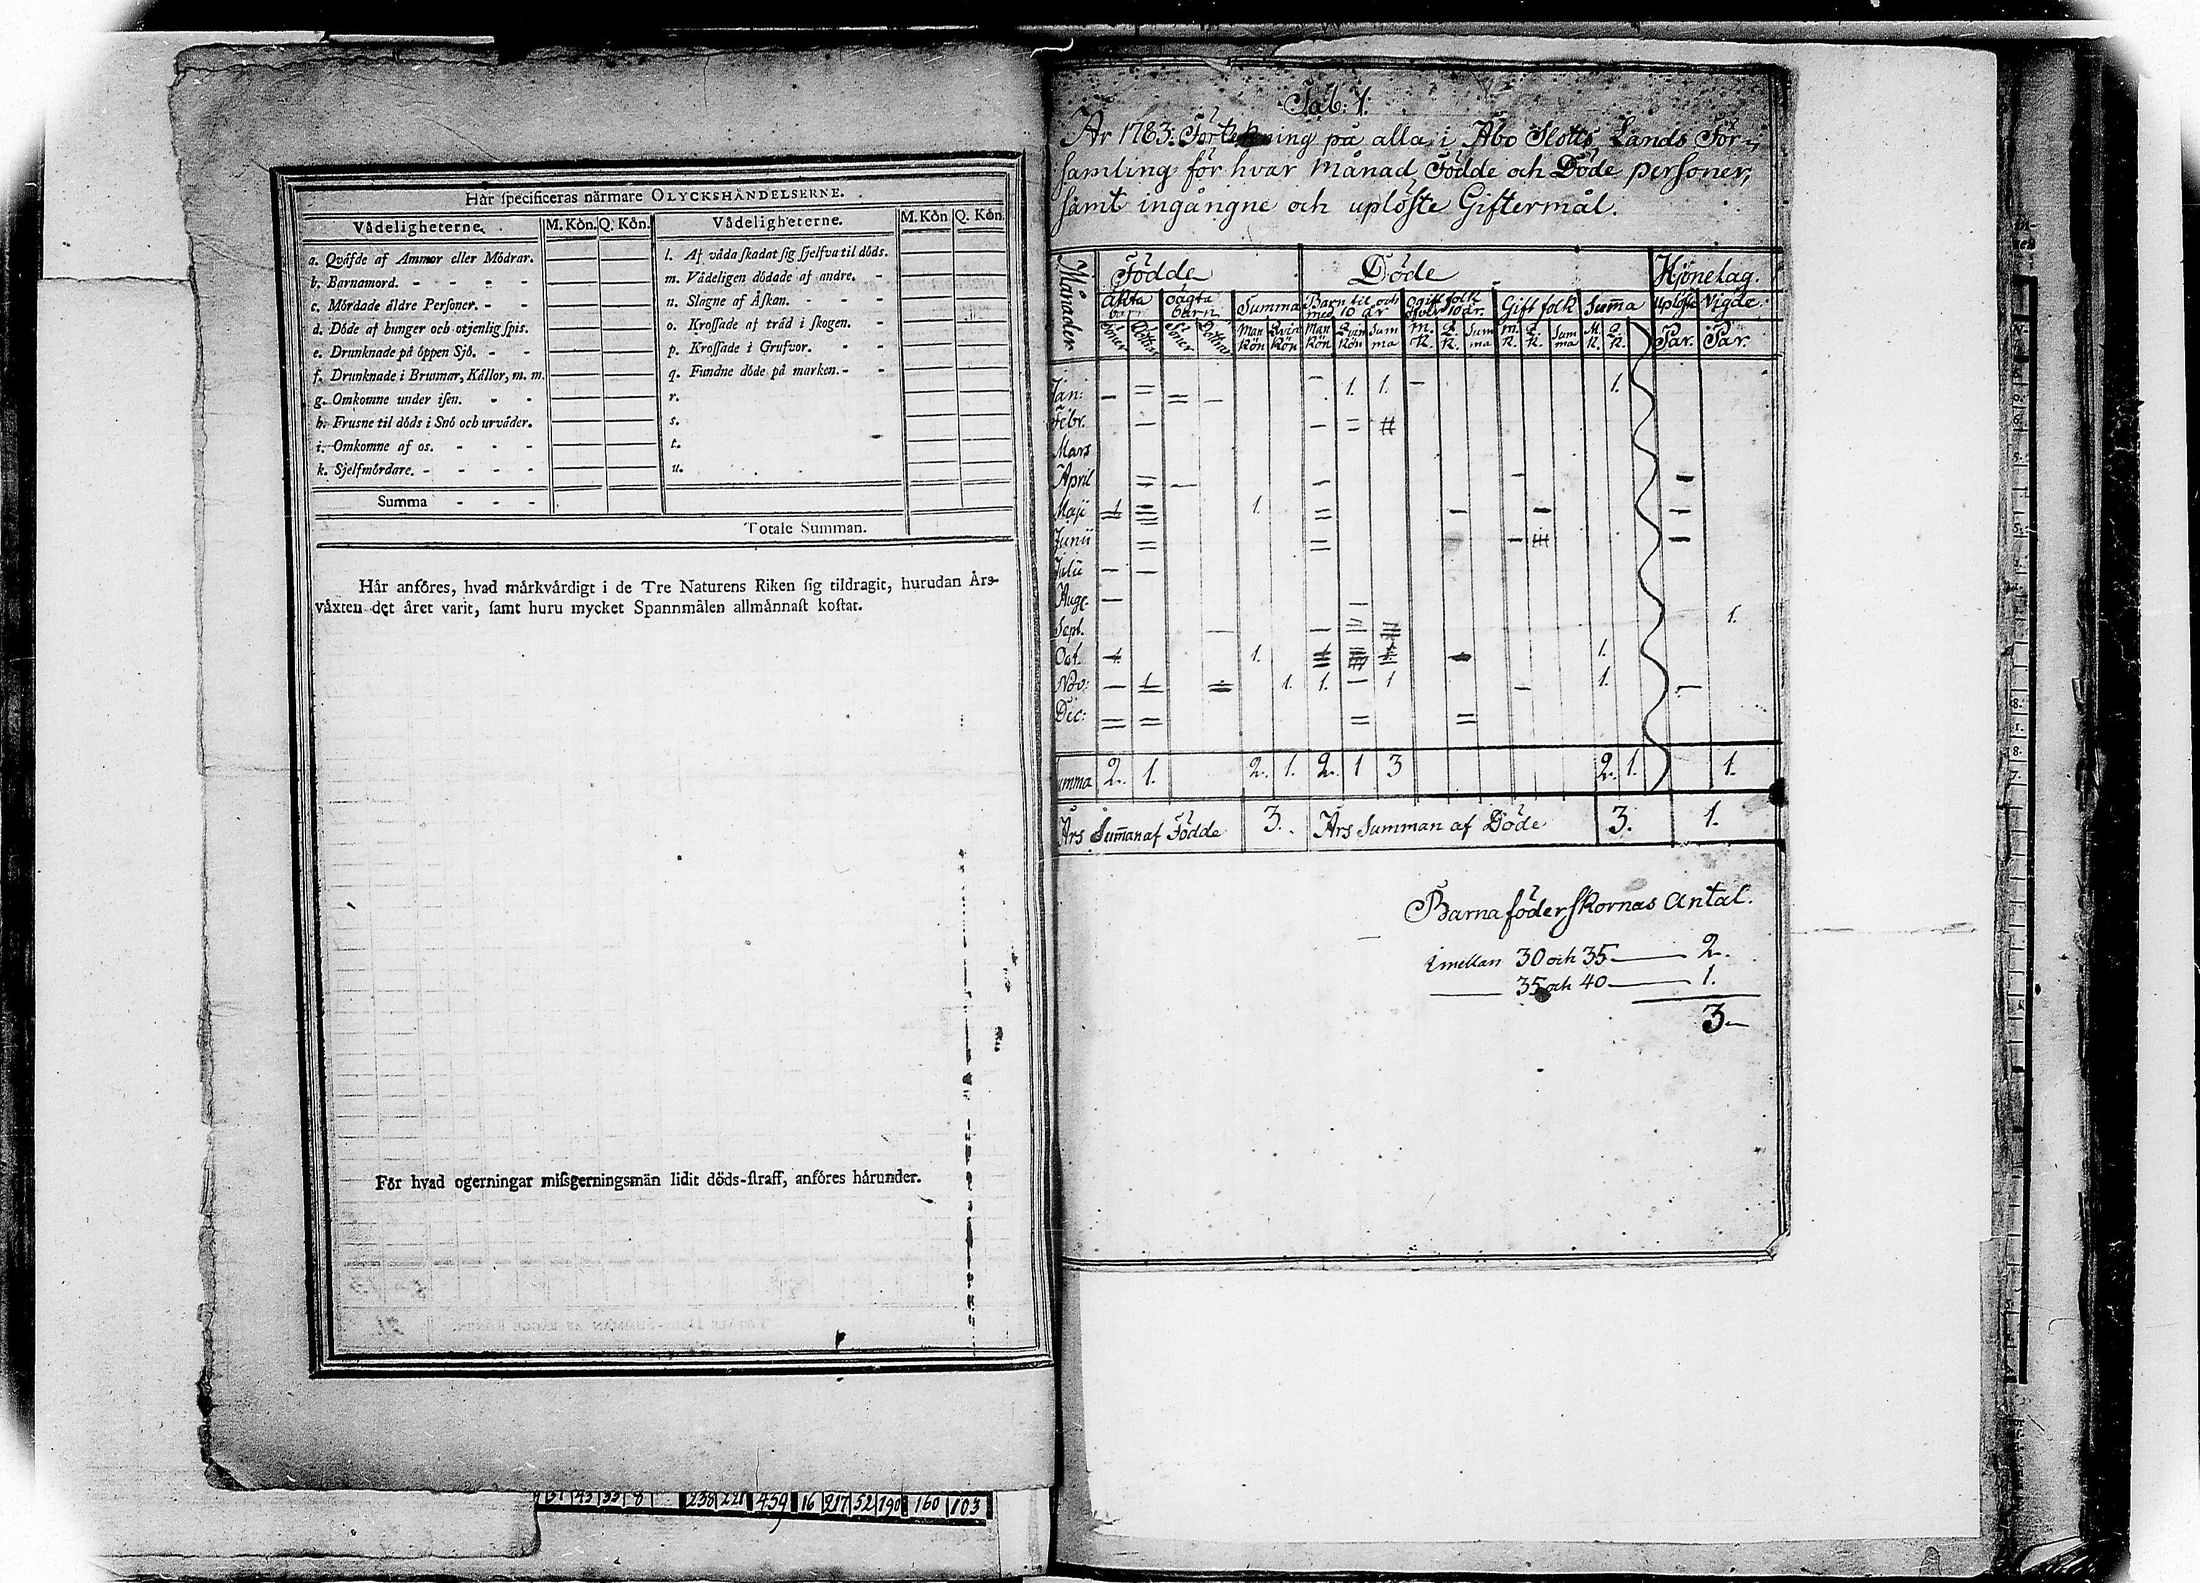 Här specificeras närmare OLYCKSHÄNDELSERNE.
Vådeligheterne. M. Kön. Q. Kön. Vådeligheterne. M. Kön Q. Kön.
a. Qväfde af Ammor eller Mödrar.
b. Barnamord. - - - - -
c. Mördade äldre Personer. - -
d. Döde af hunger och otjenlig spis.
e. Drunknade på öppen Sjö. - -
f. Drunknade i Brunnar, Källor, m. m.
g. Omkomne under isen. - -
h. Frusne til döds i Snö och urväder.
i. Omkomne af os. - - -
k. Sjelfmördare. - - - -
Summa - - -
l. Af våda skadat sig sjelfva til döds.
m. Vådeligen dödade af andre. -
n. Slagne af Åskan. - - - -
o. Krossade af träd i skogen. -
p. Krossade i Grufvor. - - -
q. Fundne döde på marken. - -
r.
s.
t.
u.
Totale Summan.
Här anföres, hvad märkvärdigt i de Tre Naturens Riken sig tildragit, hurudan Års-
växten det året varit, samt huru mycket Spannmålen allmännast kostat.
För hvad ogerningar missgerningsmän lidit döds-straff, anföres härunder.
43 33 8 238 221 459 16 217 52 190 160 103
Tab: 1.
År 1783. Förtekning på alla, i Åbo Slotts Lands För-
samling för hvar Månad Födde och Döde personer,
samt ingångne och uplöste Giftermål.
Månader Födde Döde Hjonelag.
äkta barn oägta barn Summa Barn til och med 10 år ogift folk öfver 10 år. Gift folk Summa Uplöste Vigde.
Söner Döttrar Söner Döttrar Man Kön Qvin Kön Man Kön Qvin Kön Summa M. K. Q. K. Summa M. K. Q. K. Summa M. K. Q. K. Par. Par.
Jan: 1. 1. 1.
Febr.
Mars
April
Maji 1 1.
Junii
Julii
Aug:
Sept. 1.
Oct. 1. 1.
Nov: 1 1. 1. 1 1.
Dec:
Summa 2. 1. 2. 1. 2. 1 3 2. 1. 1.
Års Summan af Födde 3. Års Summan af Döde 3. 1.
Barnaföderskornas Antal.
imellan 30 och 35 — 2.
— 35 och 40 — 1.
3